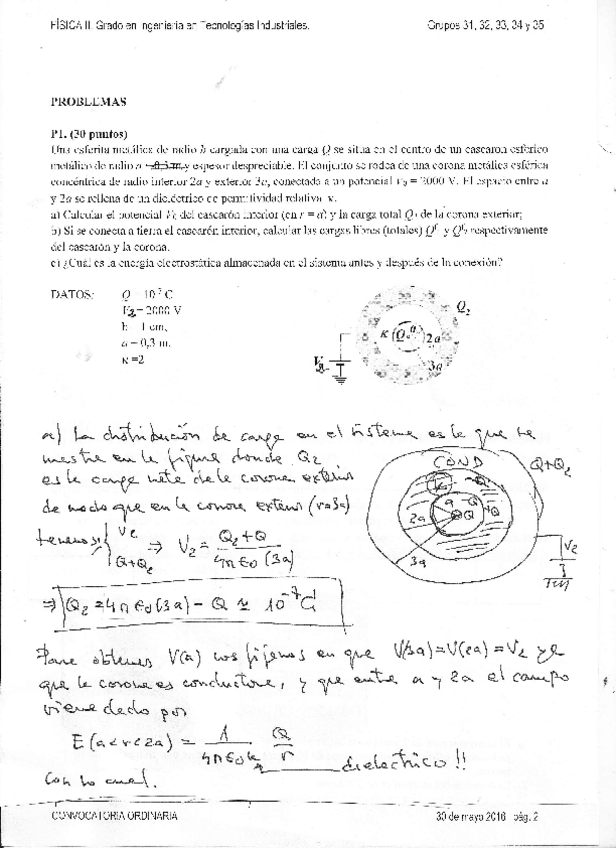 FÍSICA II. Grado en Ingeniería en Tecnologías Industriales. Grupos 31, 32, 33, 34 y 35
PROBLEMAS
P1. (30 puntos)
Una esferita metálica de radio b cargada con una carga Q se sitúa en el centro de un cascarón esférico
metálico de radio a = 0,3 m y espesor despreciable. El conjunto se rodea de una corona metálica esférica
concéntrica de radio interior 2a y exterior 3a, conectada a un potencial V₂ = 2000 V. El espacio entre a
y 2a se rellena de un dieléctrico de permitividad relativa κ.
a) Calcular el potencial del cascarón interior (en r = a) y la carga total Q₂ de la corona exterior;
b) Si se conecta a tierra el cascarón interior, calcular las cargas libres (totales) respectivamente
del cascarón y la corona.
c) ¿Cuál es la energía electrostática almacenada en el sistema antes y después de la conexión?
DATOS: Q = 10⁻⁷ C
V₂ = 2000 V
b = 1 cm,
a = 0,3 m.
κ =2
Q₂
κ Q a 2a
3a
V₂
a) La distribución de carga en el sistema es la que se
muestra en la figura donde Q₂
es la carga neta de la corona exterior
de modo que en la corona exterior (r=3a)
tenemos { V₂
Q+Q₂ ⇒ V₂ = Q₂+Q / 4πε₀(3a)
⇒ Q₂ = 4πε₀(3a) - Q ≃ 10⁻⁷ C
COND Q+Q₂
a -Q +Q
Q
2a
3a
V₂
Para obtener V(a) nos fijamos en que V(3a)=V(2a)=V₂ ya
que la corona es conductora, y que entre a y 2a el campo
viene dado por
E(a<r<2a) = 1 / 4πε₀κ Q / r
dieléctrico !!
Con lo cual.
CONVOCATORIA ORDINARIA 30 de mayo 2016 pág. 2